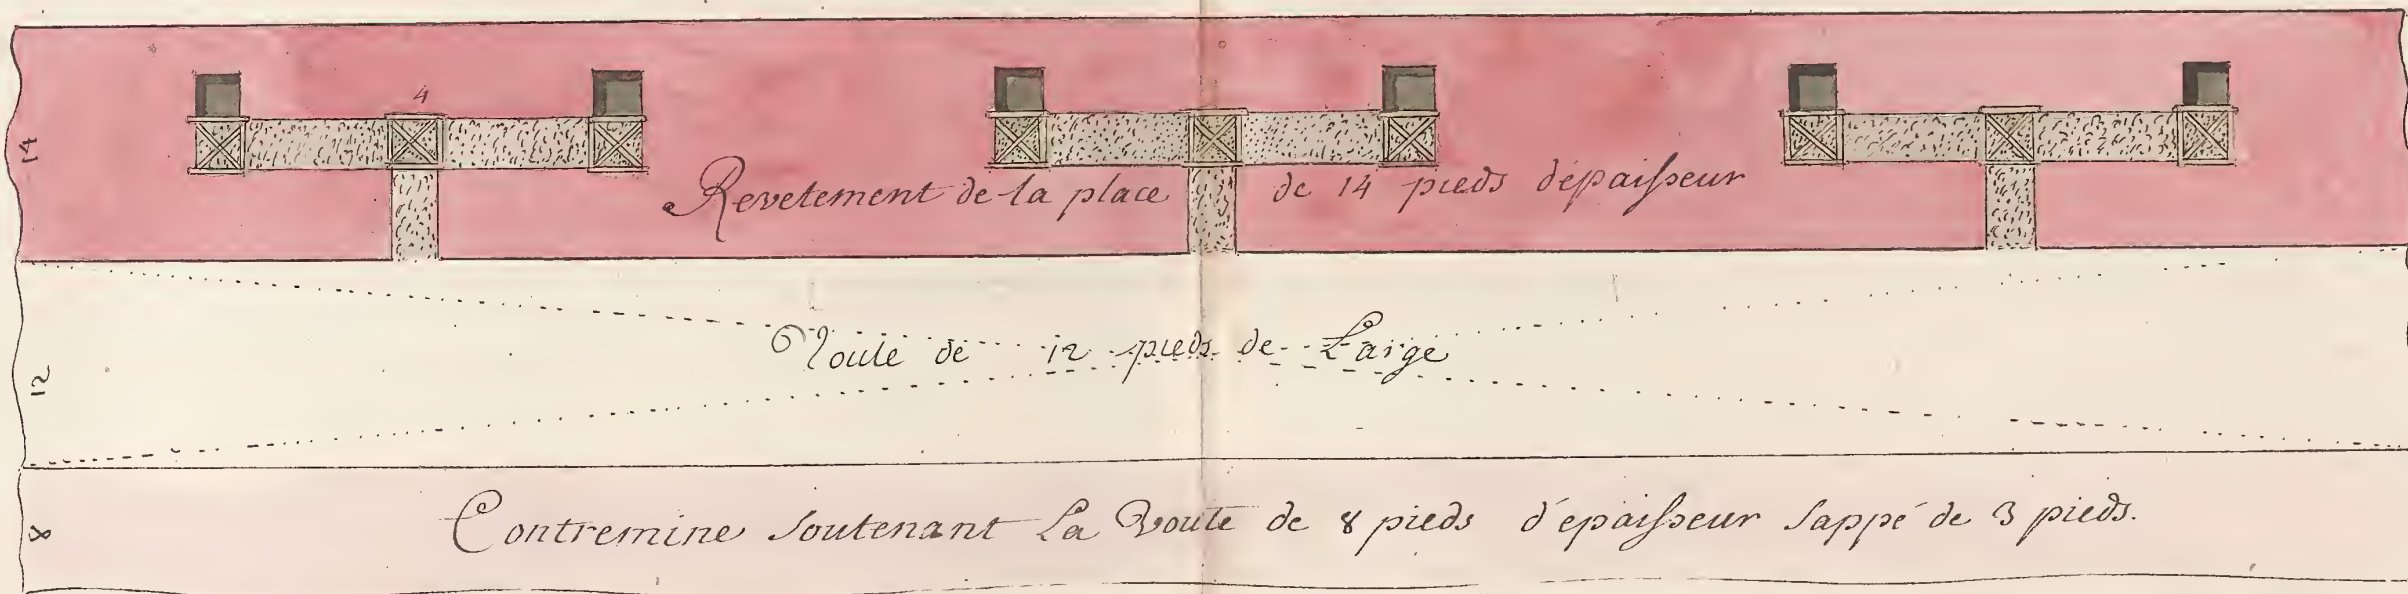 4
14
Revetement de la place de 14 pieds dépaisseur
12
Voute de 12 pieds de Large
8
Contremine soutenant La Voute de 8 pieds d'épaisseur sappé de 3 pieds.